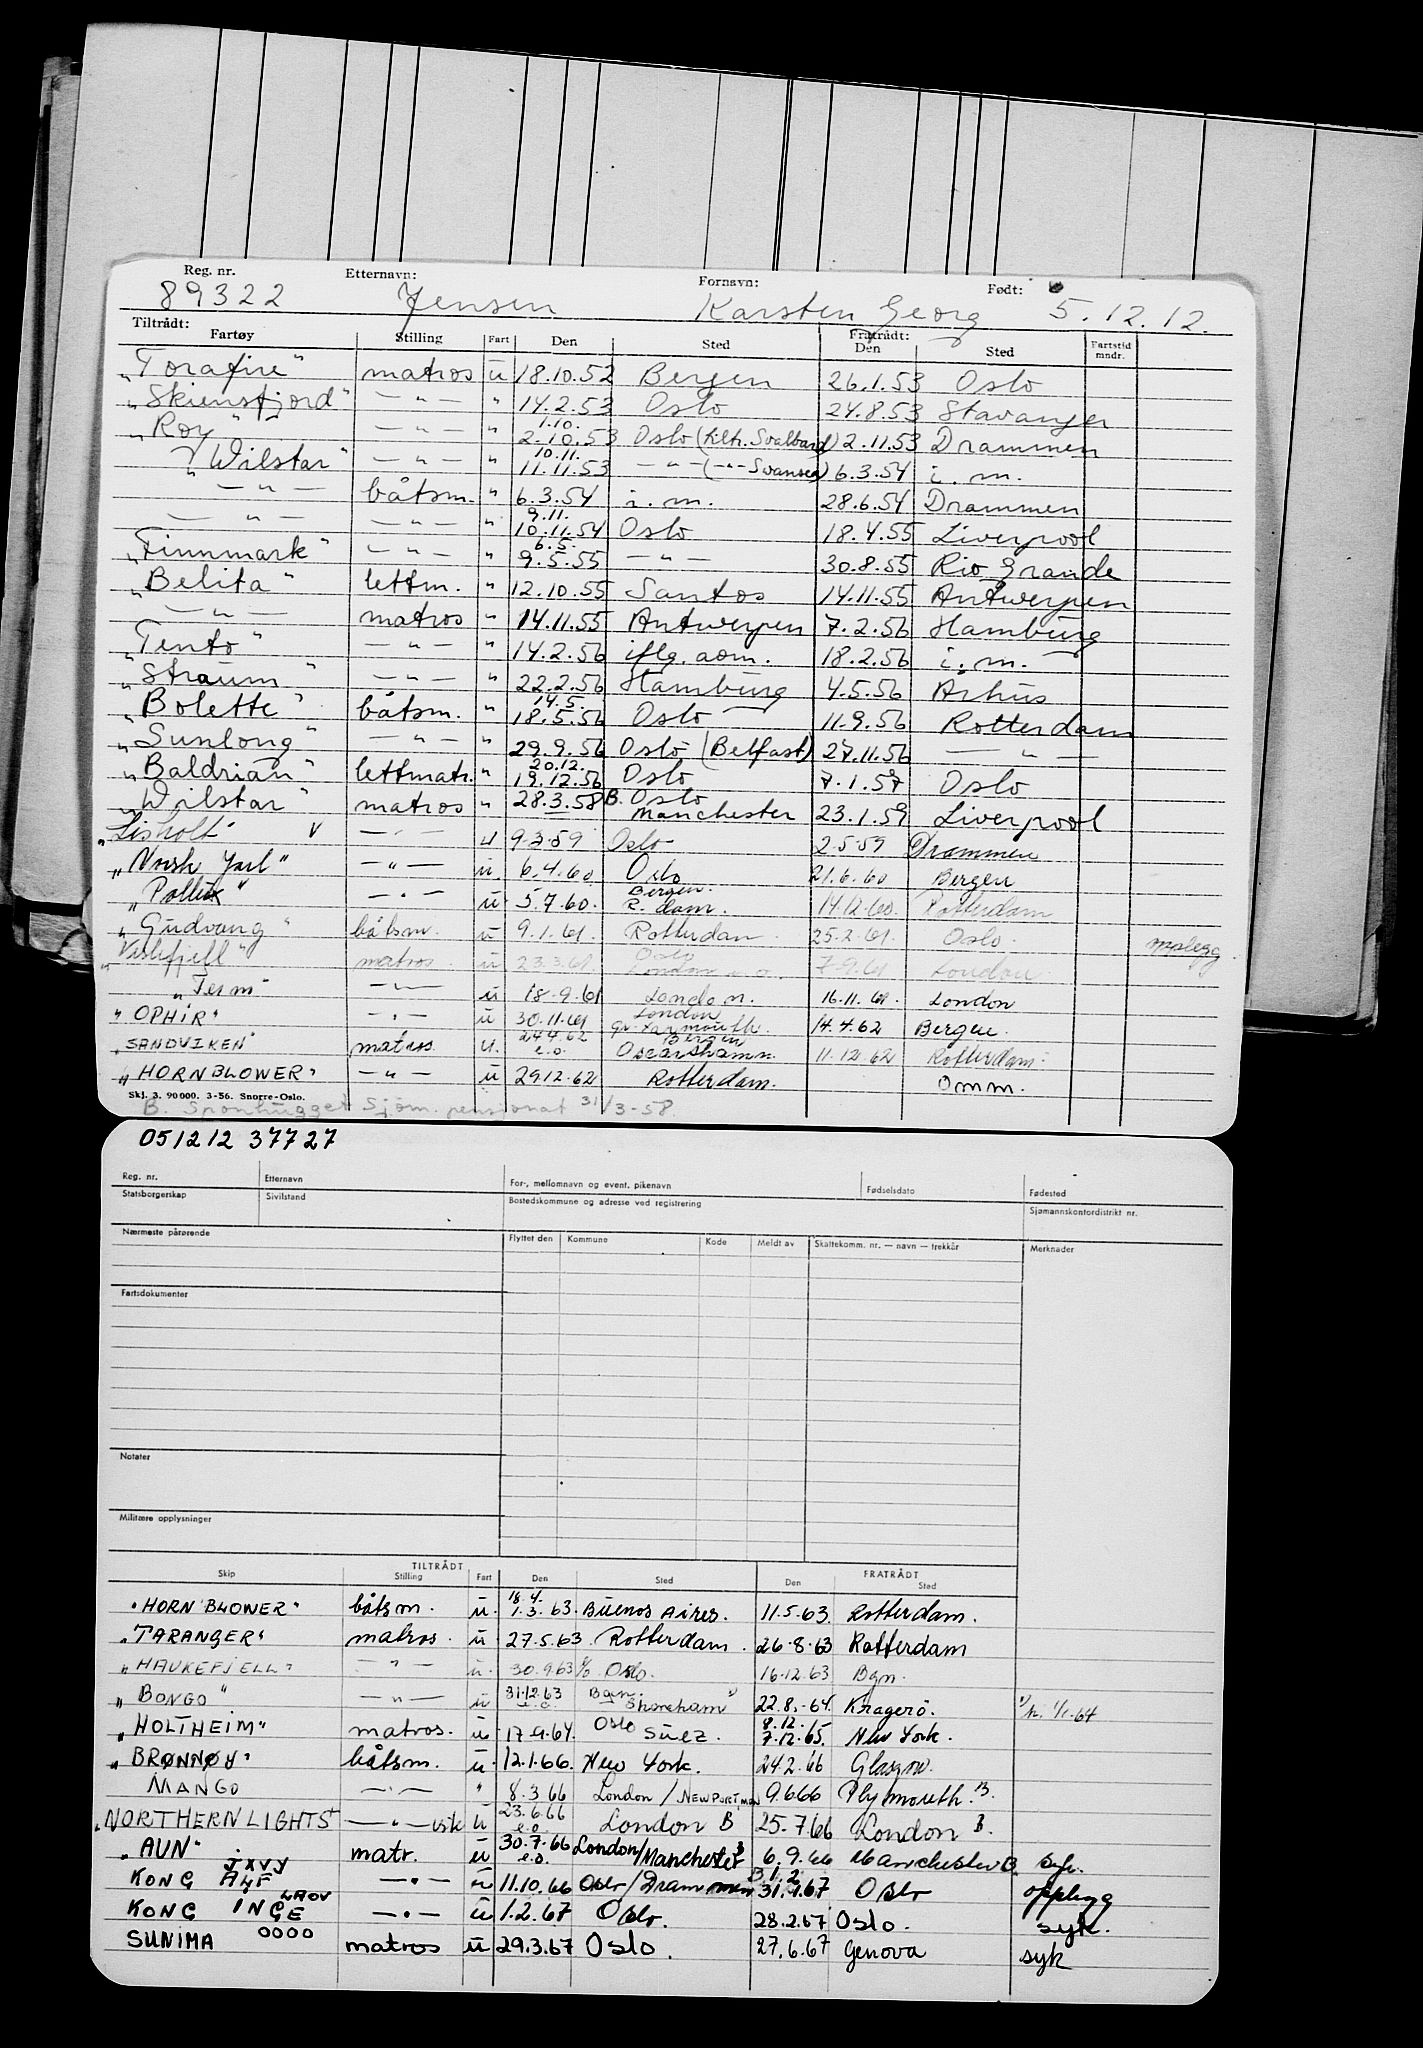 Reg. nr. Etternavn: Fornavn: Født:
89322 Jensen Karsten Georg 5.12.12.
Tiltrådt: Fratrådt: Fartstid mndr.
Fartøy Stilling Fart Den Sted Den Sted
„Torafire" matros u 18.10.52 Bergen 26.1.53 Oslo
„Skiensfjord" — " — " 14.2.53 Oslo 24.8.53 Stavanger
„Roy" — " — " 1.10. 2.10.53 Oslo (tiltr. Svalbard) 2.11.53 Drammen
„Wilstar" — " — " 10.11. 11.11.53 — " — (-"- Swansea) 6.3.54 i. m.
— " — båtsm. " 6.3.54 i. m. 28.6.54 Drammen
— " — — " — " 9.11. 10.11.54 Oslo 18.4.55 Liverpool
„Finnmark" — " — " 6.5. 9.5.55 — " — 30.8.55 Rio Grande
„Belita" lettm. " 12.10.55 Santos 14.11.55 Antwerpen
— " — matros " 14.11.55 Antwerpen 7.2.56 Hamburg
„Tento" — " — " 14.2.56 iflg. aom. 18.2.56 i. m.
„Straum" — " — " 22.2.56 Hamburg 4.5.56 Århus
„Bolette" båtsm. " 14.5. 18.5.56 Oslo 11.9.56 Rotterdam
„Sunlong" — " — " 29.9.56 Oslo (Belfast) 27.11.56 — " —
„Baldrian" lettmatr. " 20.12. 19.12.56 Oslo 7.1.57 Oslo
„Wilstar" matros " 28.3.58 B. Oslo Manchester 23.1.59 Liverpool
„Lisholt" V — " — u 9.3.59 Oslo 2.5.59 Drammen
„Norsk Jarl" — " — u. 6.4.60 Oslo 21.6.60 Bergen
„Pollux" — " — u. 5.7.60. Bergen. R.dam. 14.12.60. Rotterdam
„Gudvang" båtsm. u 9.1.61. Rotterdam 25.2.61. Oslo. opplegg
matros u 23.3.61. Oslo London e.o. 7.9.61 London
— " — u 18.9.61 London. 16.11.61. London
"OPHIR" — " — u 30.11.61 London Gr. Yarmouth. 14.4.62 Bergen.
"SANDVIKEN" matros u. 24.4.62 e.o. Bergen Oscarshamn 11.12.62 Rotterdam.
"HORNBLOWER" — " — u 29.12.62 Rotterdam. Omm.
Skj. 3. 90000. 3-56. Snorre-Oslo.
B. Sponhugget Sjöm. pensionat 31/3-58.
051212 37727
Reg. nr. Etternavn For-, mellomnavn og event. pikenavn Fødselsdato Fødested
Statsborgerskap Sivilstand Bostedskommune og adresse ved registrering Sjømannskontordistrikt nr.
Nærmeste pårørende Flyttet den Kommune Kode Meldt av Skattekomm. nr. — navn — trekkår Merknader
Fartsdokumenter
Notater
Militære opplysninger
TILTRÅDT FRATRÅDT
Skip Stilling Fart Den Sted Den Sted
"HORNBLOWER" båtsm. u. 18.4. 1.3.63. Buenos Aires. 11.5.63. Rotterdam.
"TARANGER" matros. u 27.5.63 Rotterdam. 26.8.63 Rotterdam
"HAUKEFJELL" — " — u. 30.9.63 Oslo. 16.12.63 Bgn.
"BONGO" — " — u 31.12.63 e.o. Bgn. Shoreham 1) 22.8.-64. Kragerö. 1/1-64
"HOLTHEIM" matros. u 17.9.64. Oslo Suez. 8.12. 7.12.65. New York.
"BRØNNØY" båtsm. u. 12.1.66. New York. 24.2.66 Glasgow.
MANGO — " — " 8.3.66 London / NEWPORT, MON 9.6.66 Plymouth. B.
"NORTHERN LIGHTS" — " — u 23.6.66 e.o. London B 25.7.66 London B.
"AUN" matr. u 30.7.66 e.o. London/Manchester B 6.9.66 Manchester B.
KONG ALF JXVY — " — u 11.10.66 Oslo/Drammen B.1.2 31.1.67 Oslo opplegg
KONG INGE LAOV — " — u 1.2.67 Oslo. 28.2.67 Oslo. syk.
SUNIMA OOOO matros u 29.3.67 Oslo. 27.6.67 Genova syk